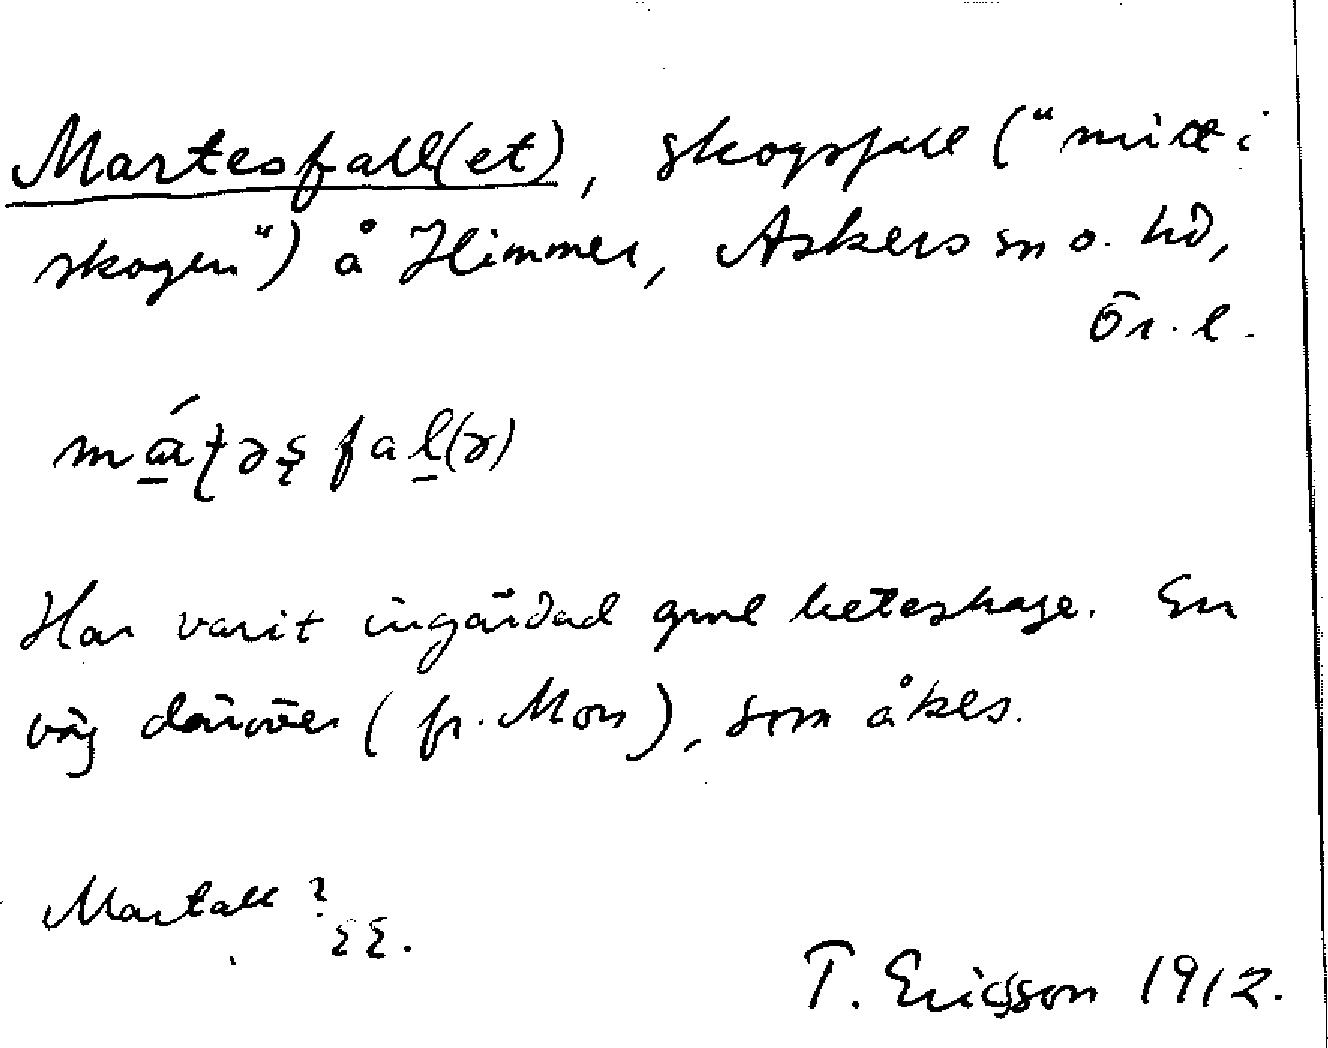 Martesfall(et), skogsfall ("mitt i
skogen") å Himmer, Askers sn o. hd,
Ör. l.
má̱ʈəʂfaḻ(ə)
Har varit ingärdad gml beteshage. En
väg däröver (fr. Mon), som åkes.
Martall?
EE.
T. Ericsson 1912.